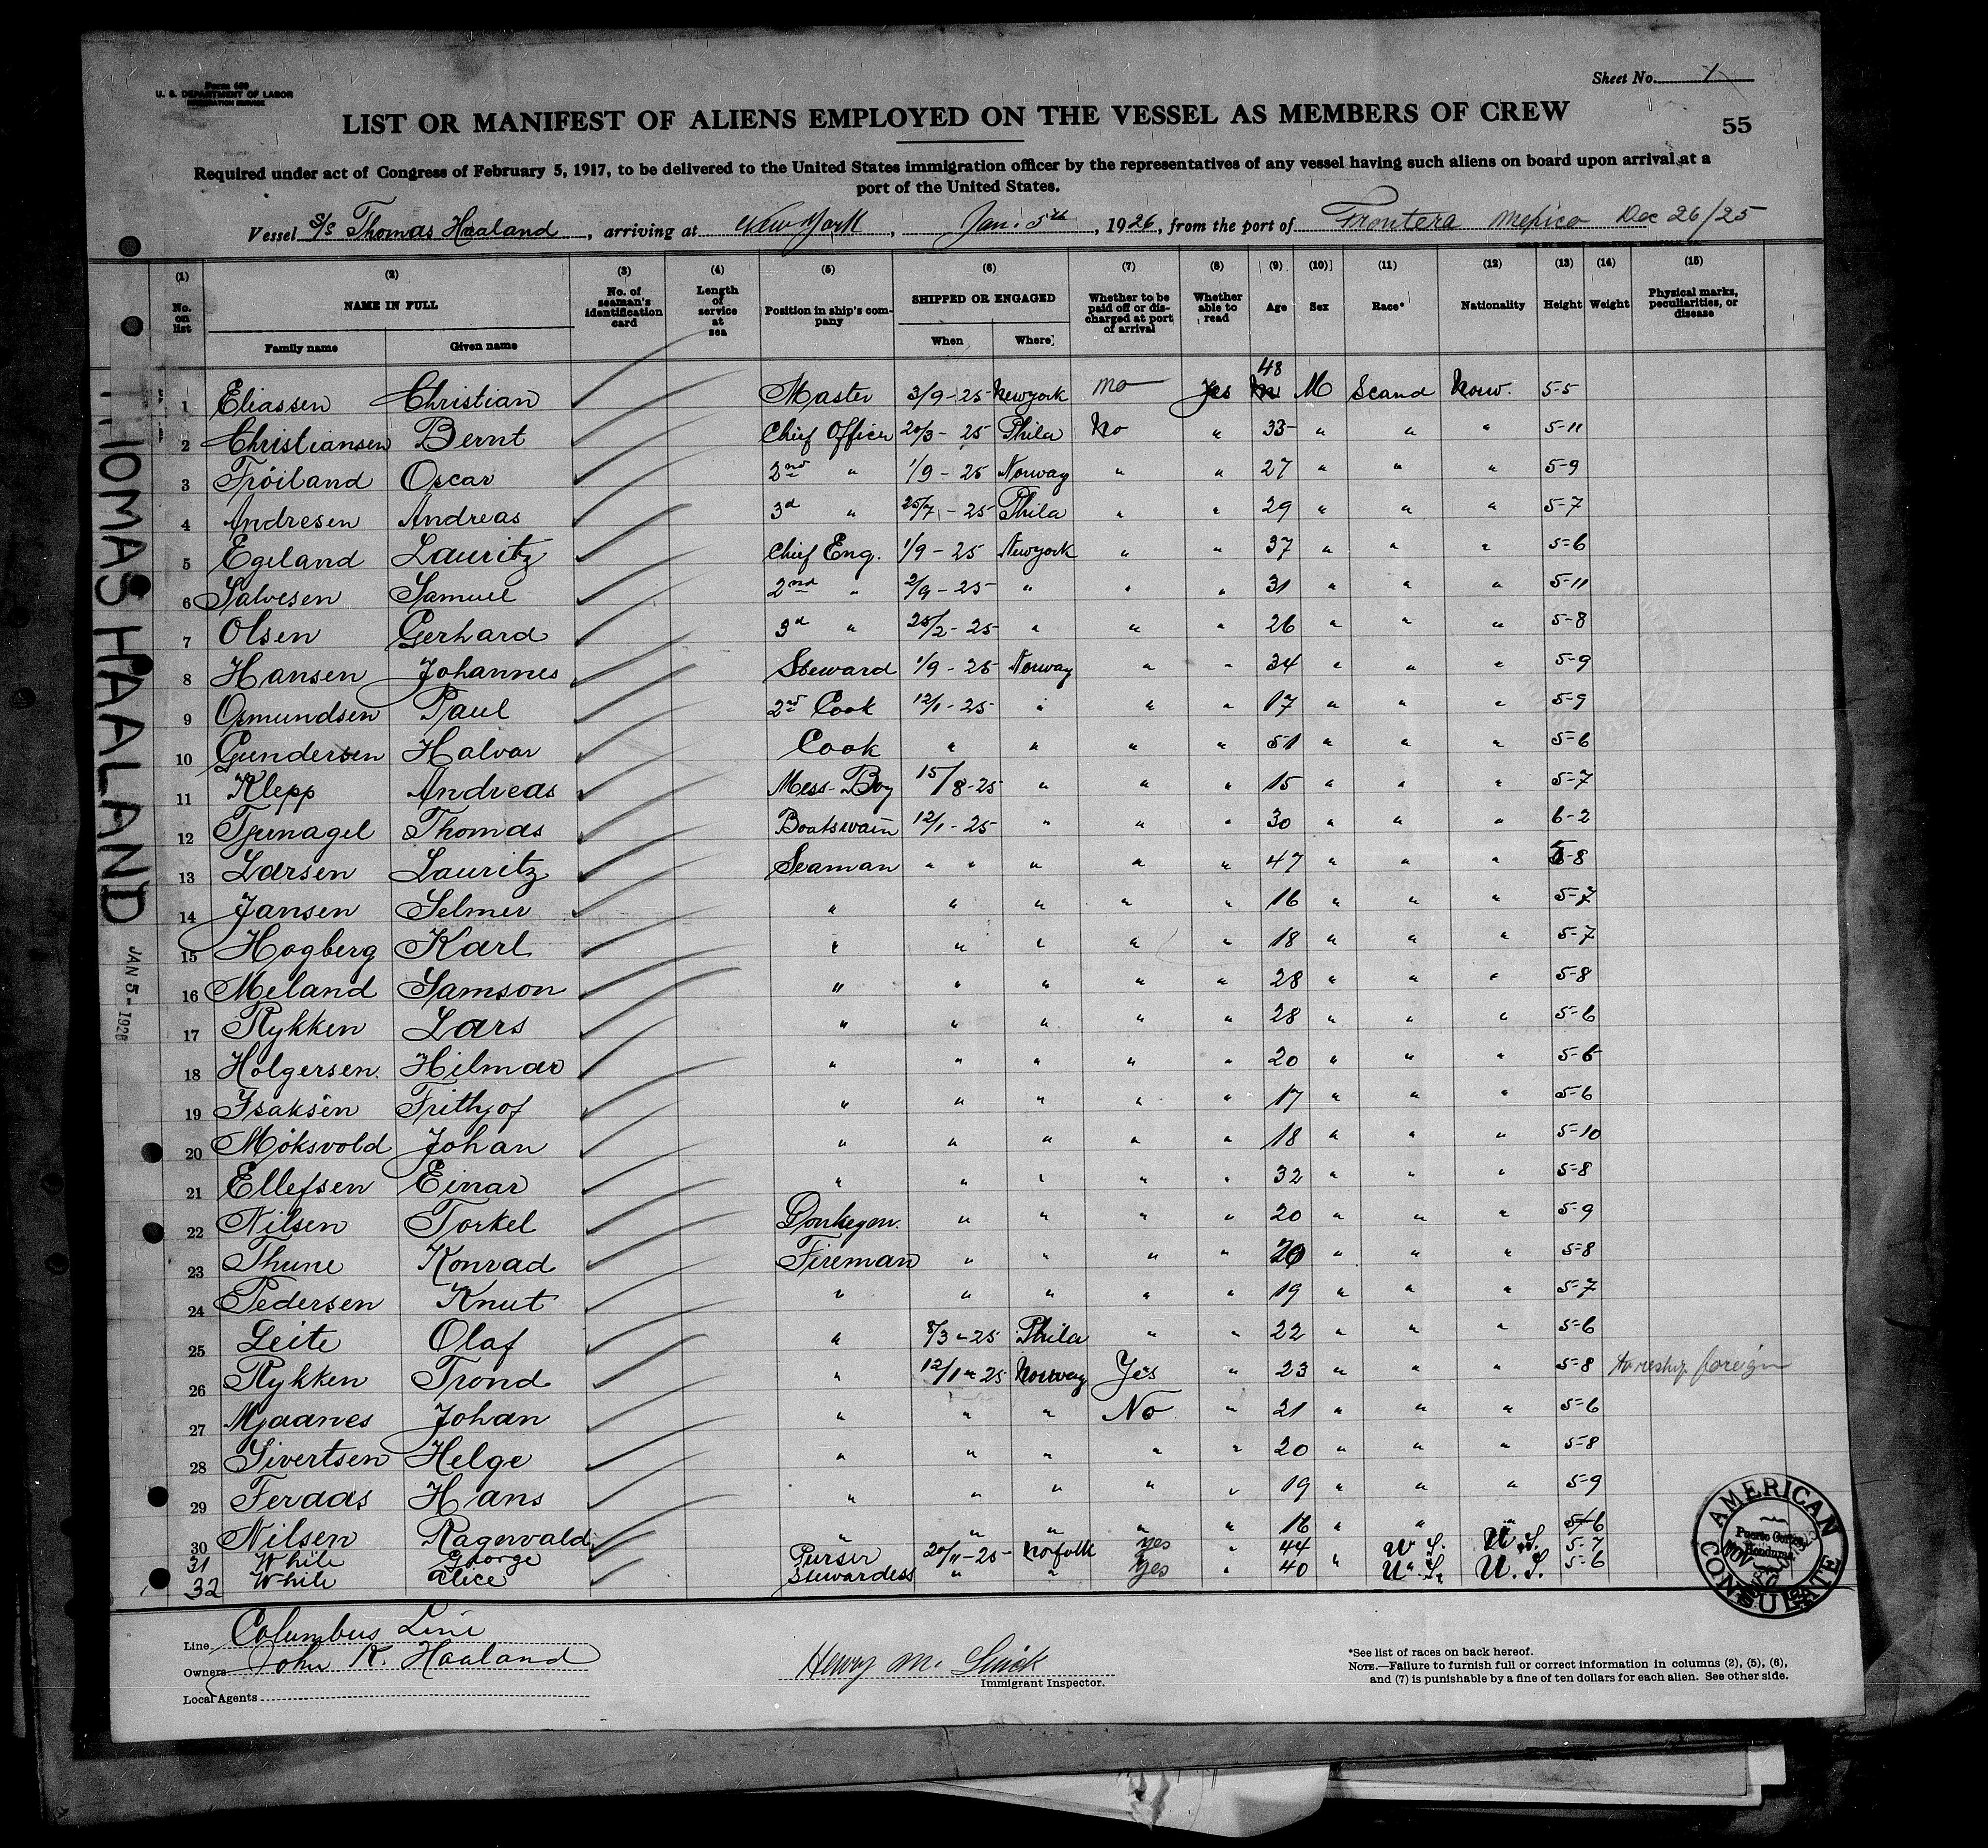 Sheet No. 1
Form 680
U. S. DEPARTMENT OF LABOR
IMMIGRATION SERVICE
LIST OR MANIFEST OF ALIENS EMPLOYED ON THE VESSEL AS MEMBERS OF CREW
55
Required under act of Congress of February 5, 1917, to be delivered to the United States immigration officer by the representatives of any vessel having such aliens on board upon arrival at a
port of the United States.
Vessel S/S Thomas Haaland, arriving at New York, Jan. 5th, 1926, from the port of Frontera Mexico Dec 26/25
(1) (2) (3) (4) (5) (6) (7) (8) (9) (10) (11) (12) (13) (14) (15)
No. on list NAME IN FULL Family name Given name No. of seaman's identification card Length of service at sea Position in ship's company SHIPPED OR ENGAGED When Where Whether to be paid off or discharged at port of arrival Whether able to read Age Sex Race* Nationality Height Weight Physical marks, peculiarities, or disease
1 Eliassen Christian Master 3/9-25 Newyork no Yes 48 M Scand Norw. 5-5
2 Christiansen Bernt Chief Officer 20/3-25 Phila No " 33 " " " 5-11
3 Fröiland Oscar 2nd " 1/9-25 Norway " " 27 " " " 5-9
4 Andresen Andreas 3d " 25/7-25 Phila " " 29 " " " 5-7
5 Egeland Lauritz Chief Eng. 1/9-25 Newyork " " 37 " " " 5-6
6 Salvesen Samuel 2nd " 2/9-25 " " " 31 " " " 5-11
7 Olsen Gerhard 3d " 25/2-25 " " " 26 " " " 5-8
8 Hansen Johannes Steward 1/9-25 Norway " " 34 " " " 5-9
9 Osmundsen Paul 2nd Cook 12/1-25 " " " 17 " " " 5-9
10 Gundersen Halvor Cook " " " " 51 " " " 5-6
11 Klepp Andreas Mess-Boy 15/8-25 " " " 15 " " " 5-7
12 Tjenagel Thomas Boatswain 12/1-25 " " " 30 " " " 6-2
13 Larsen Lauritz Seaman " " " " 47 " " " 5-8
14 Jansen Selmer " " " " " 16 " " " 5-7
15 Hogberg Karl " " " " " 18 " " " 5-7
16 Meland Samson " " " " " 28 " " " 5-8
17 Rykken Lars " " " " " 28 " " " 5-6
18 Holgersen Hilmar " " " " " 20 " " " 5-6
19 Isaksen Frithjof " " " " " 17 " " " 5-6
20 Möksvold Johan " " " " " 18 " " " 5-10
21 Ellefsen Einar " " " " " 32 " " " 5-8
22 Nilsen Torkel Donkeyon. " " " " 20 " " " 5-9
23 Thune Konrad Fireman " " " " 20 " " " 5-8
24 Pedersen Knut " " " " " 19 " " " 5-7
25 Leite Olaf " 8/3-25 Phila " " 22 " " " 5-6
26 Rykken Trond " 12/1-25 Norway Yes " 23 " " " 5-8 to reship foreign
27 Mjaanes Johan " " " No " 21 " " " 5-6
28 Sivertsen Helge " " " " " 20 " " " 5-8
29 Feraas Hans " " " " " 19 " " " 5-9
30 Nilsen Ragnvald " " " " " 16 " " " 5-6
31 White George Purser 20/11-25 Norfolk yes " 44 " U.S. U.S. 5-7
32 White Alice Stewardess " " yes " 40 U.S. U.S. 5-6
THOMAS HAALAND
JAN 5-1926
AMERICAN CONSULATE
Puerto Cortes, Honduras
Line Columbus Line
Owners John K. Haaland
Local Agents
Henry M.
Immigrant Inspector.
*See list of races on back hereof.
NOTE.—Failure to furnish full or correct information in columns (2), (5), (6),
and (7) is punishable by a fine of ten dollars for each alien. See other side.